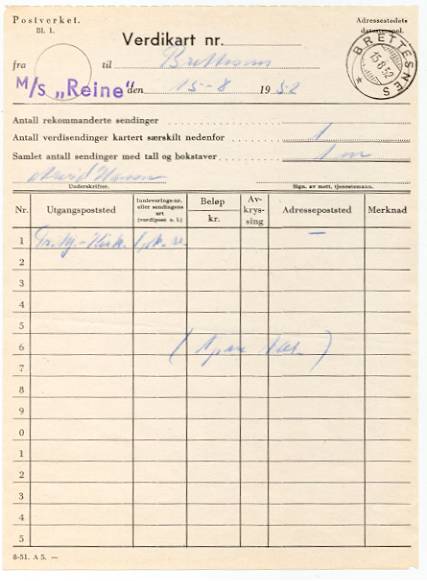 Postverket.
Bl. 1.
Adressestedets
datostempel.
Verdikart nr.
fra til Brettesnes
BRETTESNES
15-8-52
M/S „Reine" den 15-8 1952
Antall rekommanderte sendinger
Antall verdisendinger kartert særskilt nedenfor 1
Samlet antall sendinger med tall og bokstaver 1 en
Arvid Hansen
Underskrifter. Sign. av mott. tjenestemann.
Nr. Utgangspoststed Innleverings-nr. eller sendingens art (verdipost o. l.) Beløp kr. Av-kryss-ing Adressepoststed Merknad
1 —
2
3
4
5
6 ( )
7
8
9
0
1
2
3
4
5
8-51. A 5. —